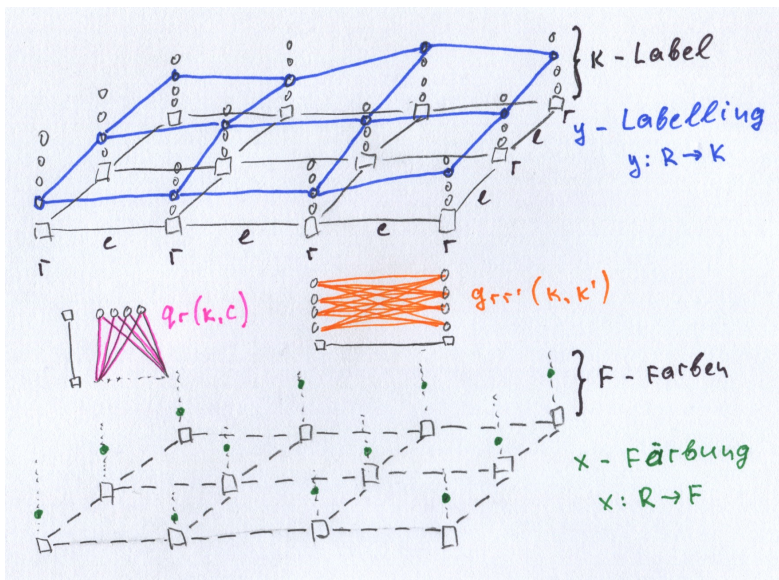 K - Label
y - Labelling
y: R → K
r
e
r
e
r
e
r
e
r
e
r
qr(k,c)
grr'(k,k')
F - Farben
x - Färbung
x: R → F